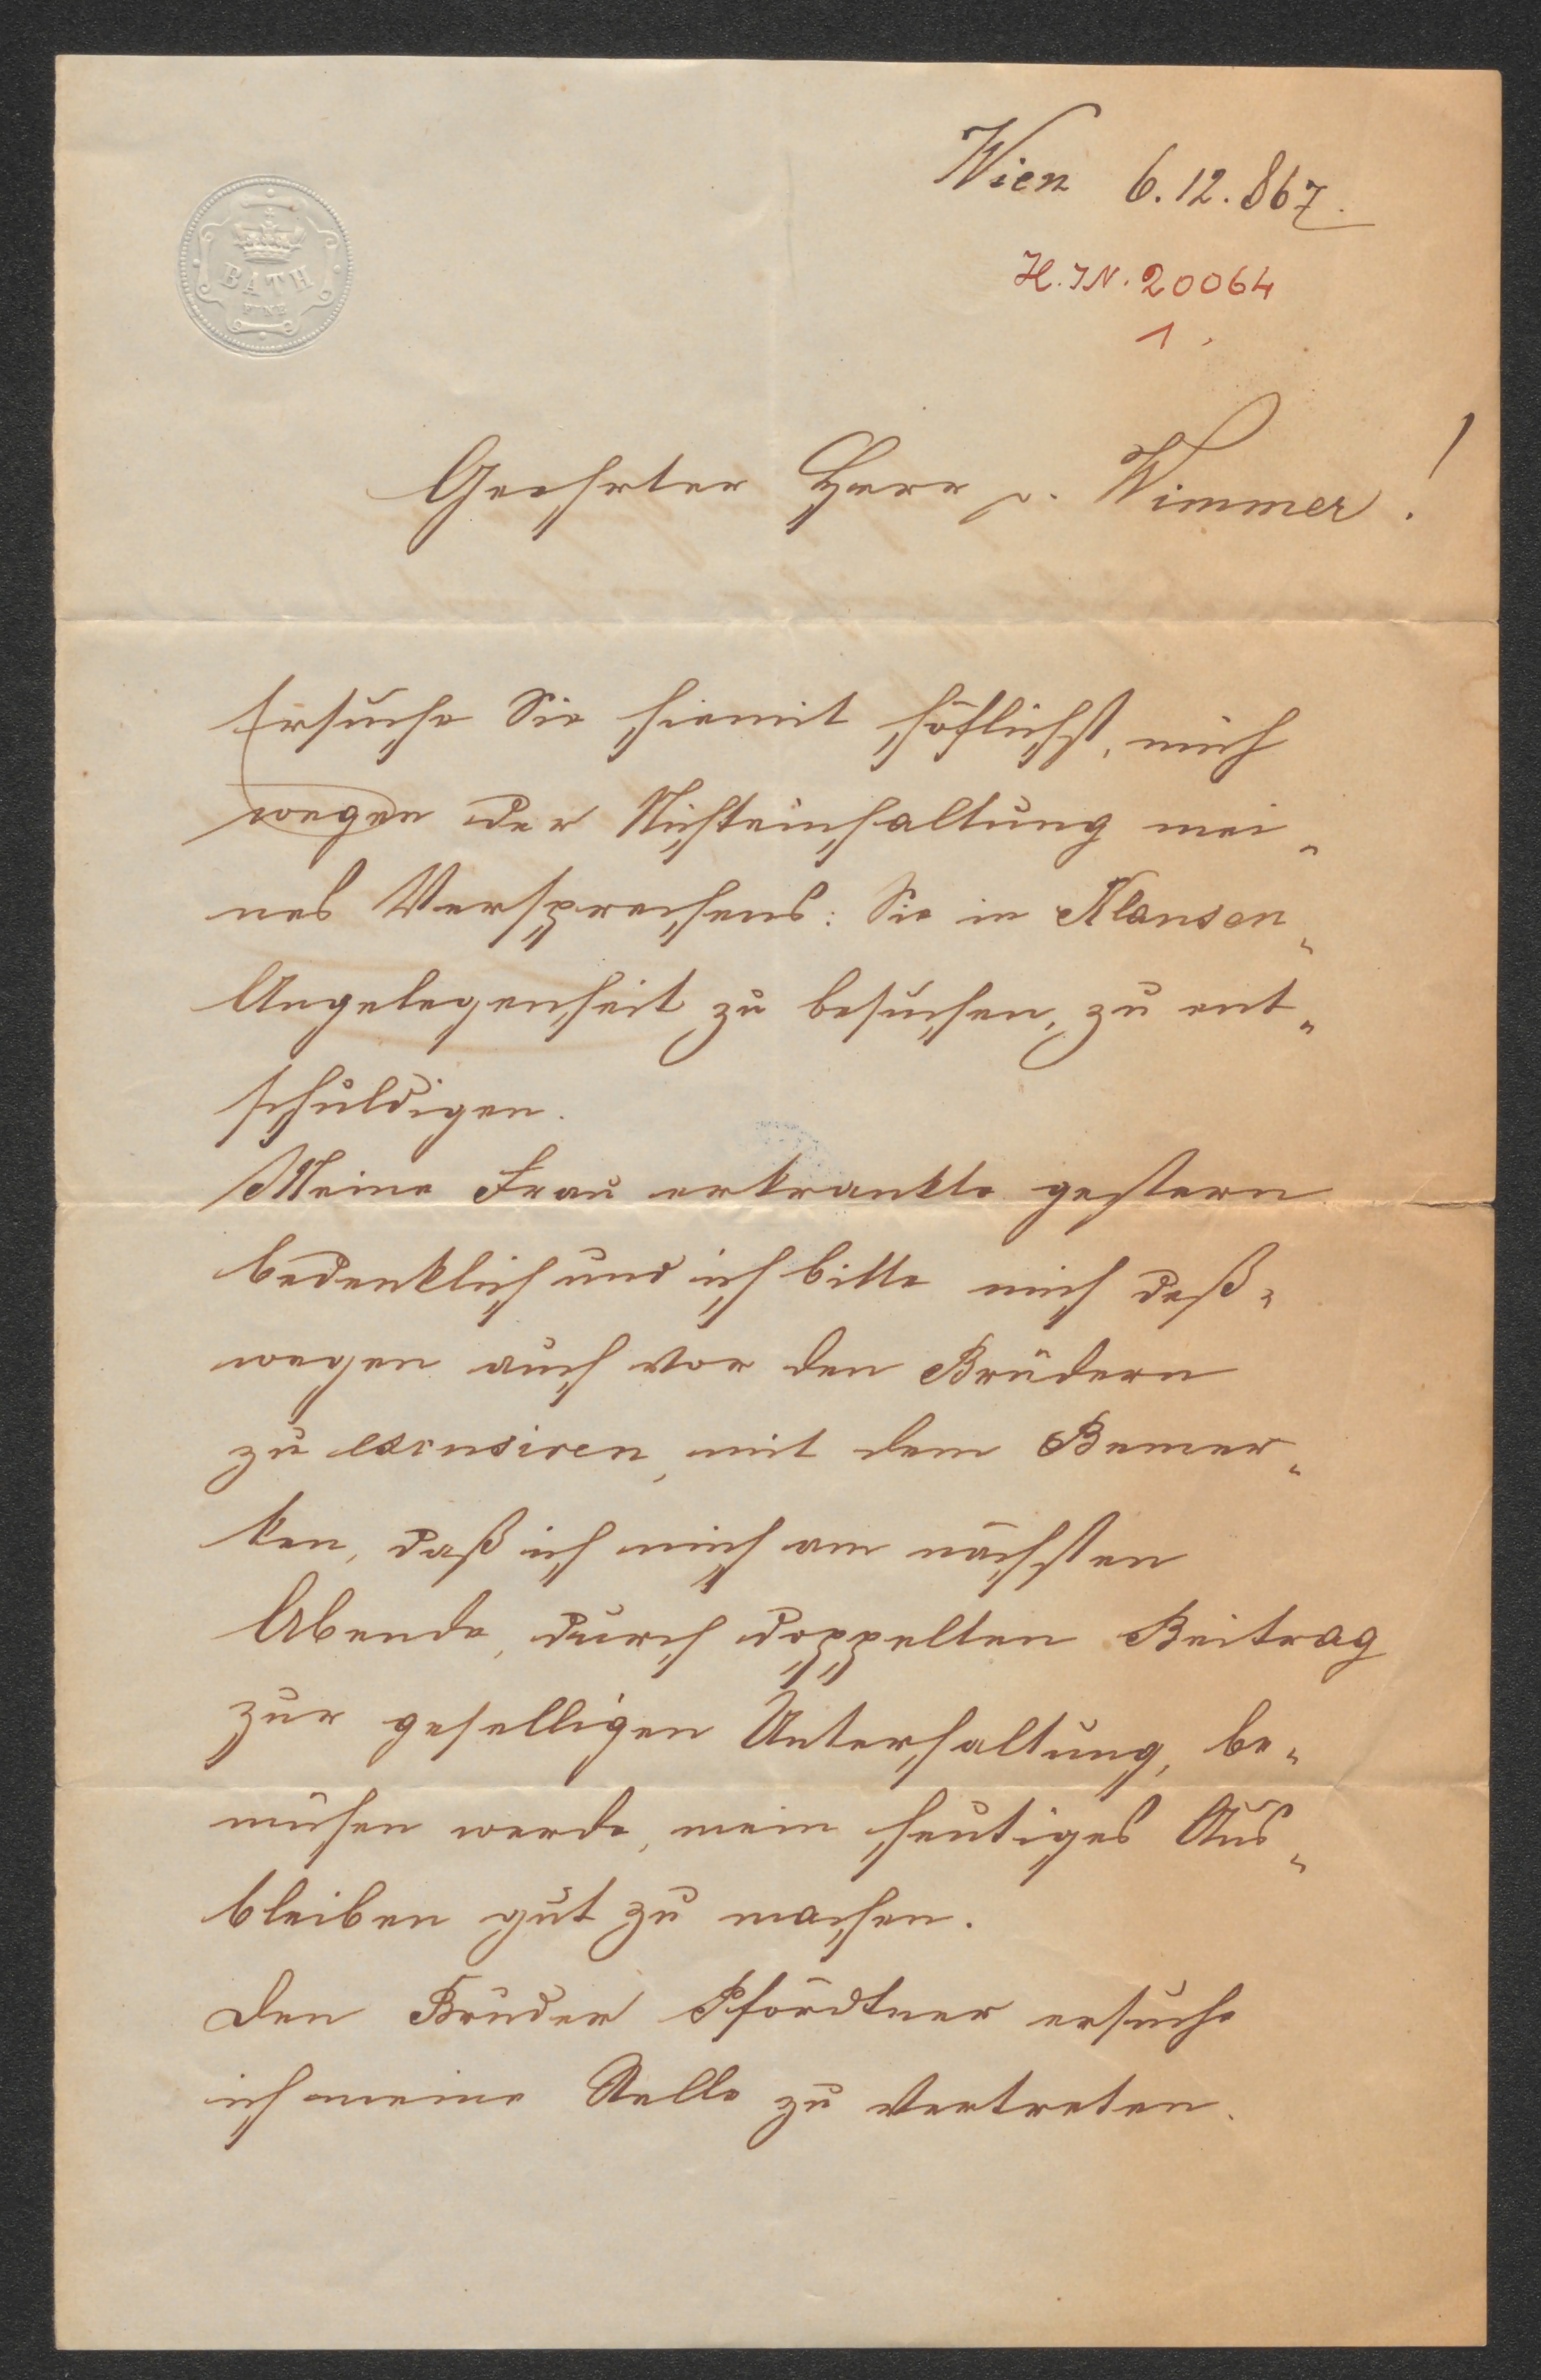 Wien 6.12.867.
BATH
FINE
H.IN. 20064
1.
Geehrter Herr v. Wimmer!
Ersuche Sie hiemit höflichst, mich
wegen der Nichteinhaltung mei-
nes Versprechens: Sie in Klausen-
Angelegenheit zu besuchen, zu ent-
schuldigen.
Meine Frau erkrankte gestern
bedenklich und ich bitte mich deß-
wegen auch vor den Brüdern
zu excusiren, mit dem Bemer-
ken, daß ich mich am nächsten
Abende, durch doppelten Beitrag
zur geselligen Unterhaltung, be-
mühen werde, mein heutiges Aus-
bleiben gut zu machen.
Den Bruder Pfördtner ersuche
ich meine Stelle zu vertreten.